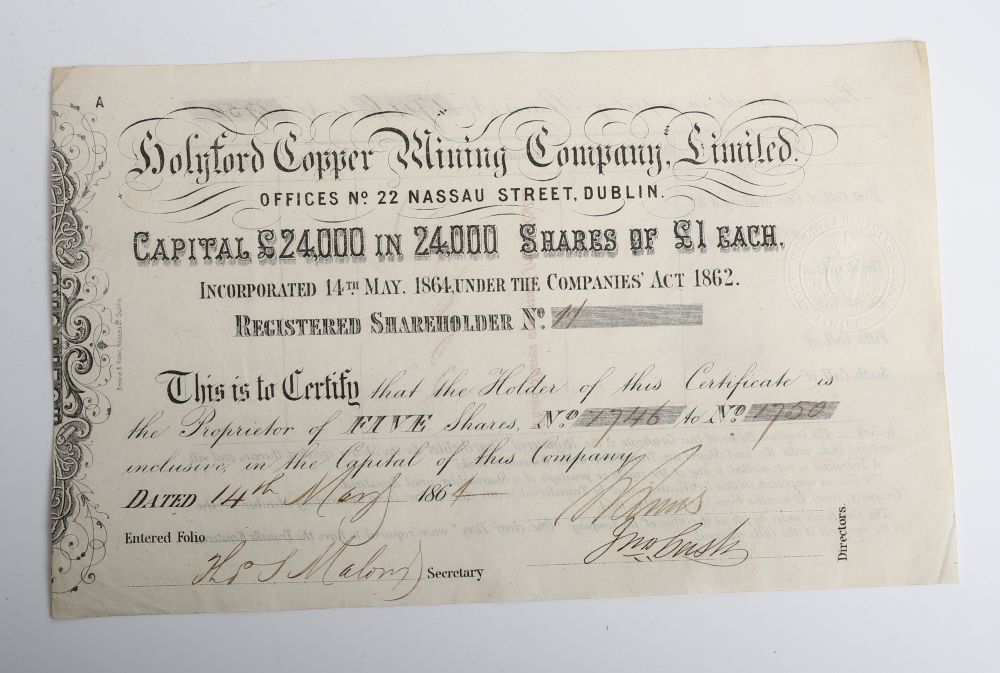 A
Holyford Copper Mining Company, Limited.
OFFICES No. 22 NASSAU STREET, DUBLIN.
CAPITAL £24,000 IN 24,000 SHARES OF £1 EACH.
INCORPORATED 14TH MAY, 1864, UNDER THE COMPANIES' ACT 1862.
REGISTERED SHAREHOLDER No. 11
This is to Certify that the Holder of this Certificate is
the Proprietor of FIVE Shares, No. 1746 to No. 1750
inclusive, in the Capital of this Company
DATED 14th May 1864
Entered Folio
Thos S Malony Secretary
Jno Cush
Directors